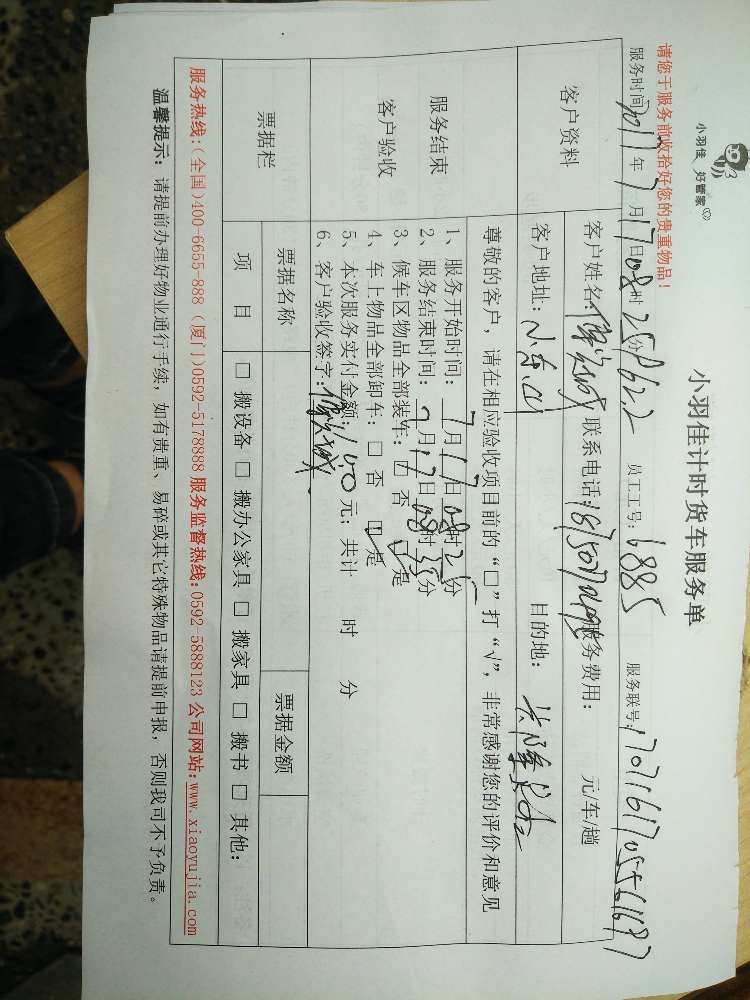 小羽佳 好管家
小羽佳计时货车服务单
请您于服务前收拾好您的贵重物品!
服务时间 2017 年 7 月 17 日 08 时 25 分 员工工号: 6885 服务联号:
客户资料
客户姓名: 联系电话: 服务费用: 元/车/趟
客户地址: 小东山 目的地:
服务结束
客户验收
尊敬的客户,请在相应验收项目前的“□”打“√”,非常感谢您的评价和意见
1、服务开始时间: 7 月 17 日 08 时 25 分
2、服务结束时间: 7 月 17 日 08 时 55 分
3、候车区物品全部装车: □ 否 ☑ 是
4、车上物品全部卸车: □ 否 ☑ 是
5、本次服务实付金额: 150 元; 共计 时 分
6、客户验收签字:
票据栏
票据名称 票据金额
项 目 □ 搬设备 □ 搬办公家具 □ 搬家具 □ 搬书 □ 其他:
服务热线:(全国)400-6655-888 (厦门)0592-5178888 服务监督热线:0592-5888123 公司网站:www.xiaoyujia.com
温馨提示: 请提前办理好物业通行手续,如有贵重、易碎或其它特殊物品请提前申报,否则我司不予负责。